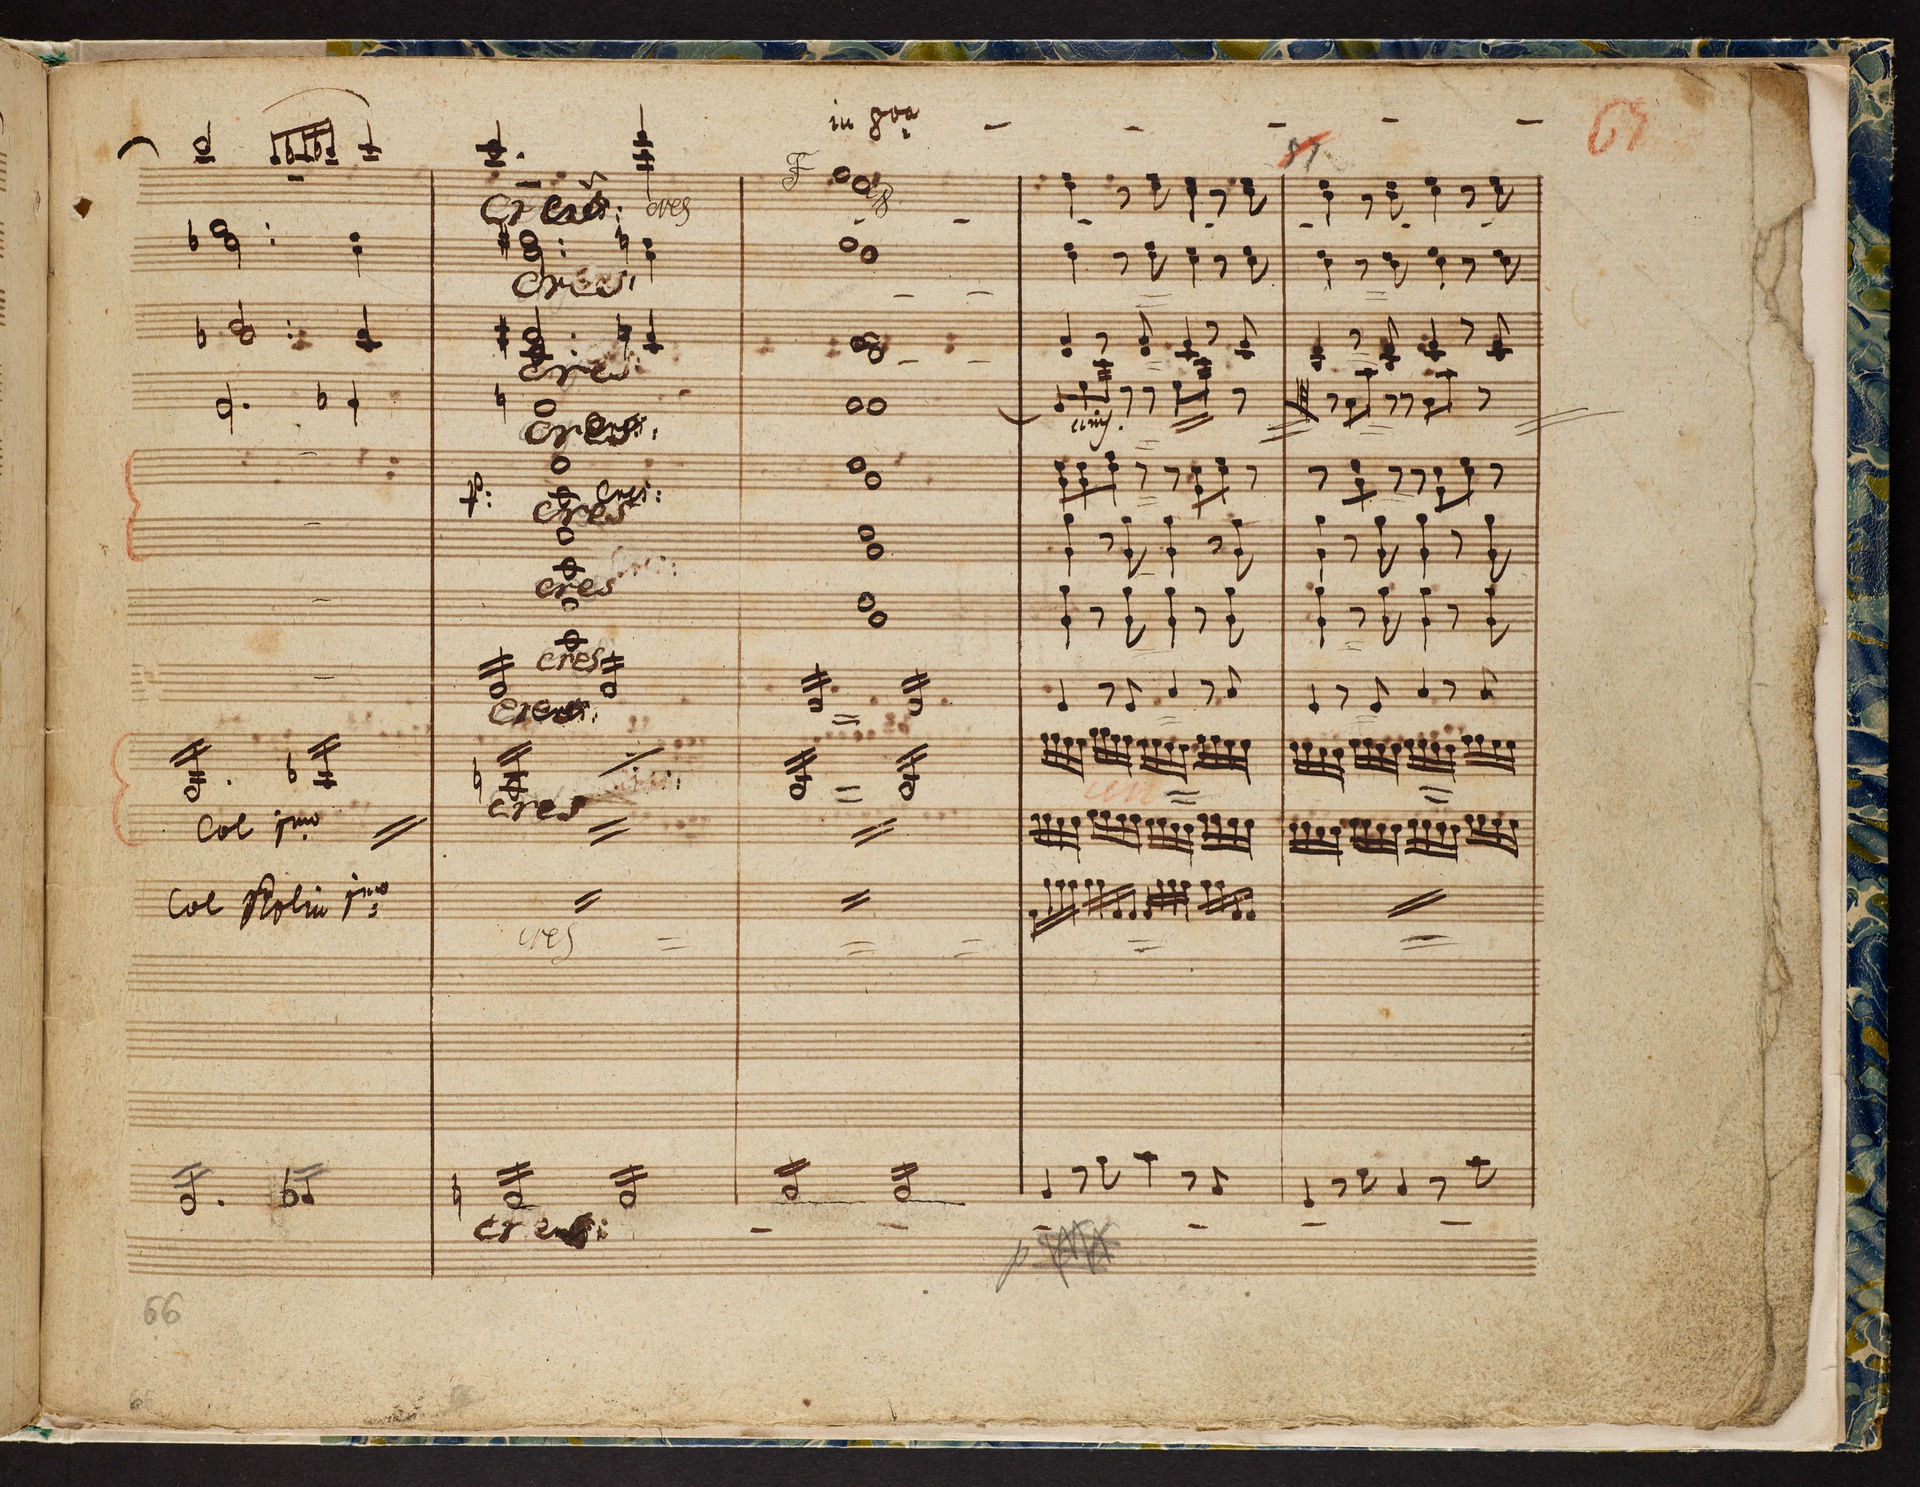 in 8va
67
F
cres: cres
cres:
cres:
cres:
unis.
p: cres:
cres
cres
cres
cres:
cres
Col 1mo
Col Violin 1mo
cres
cres:
66